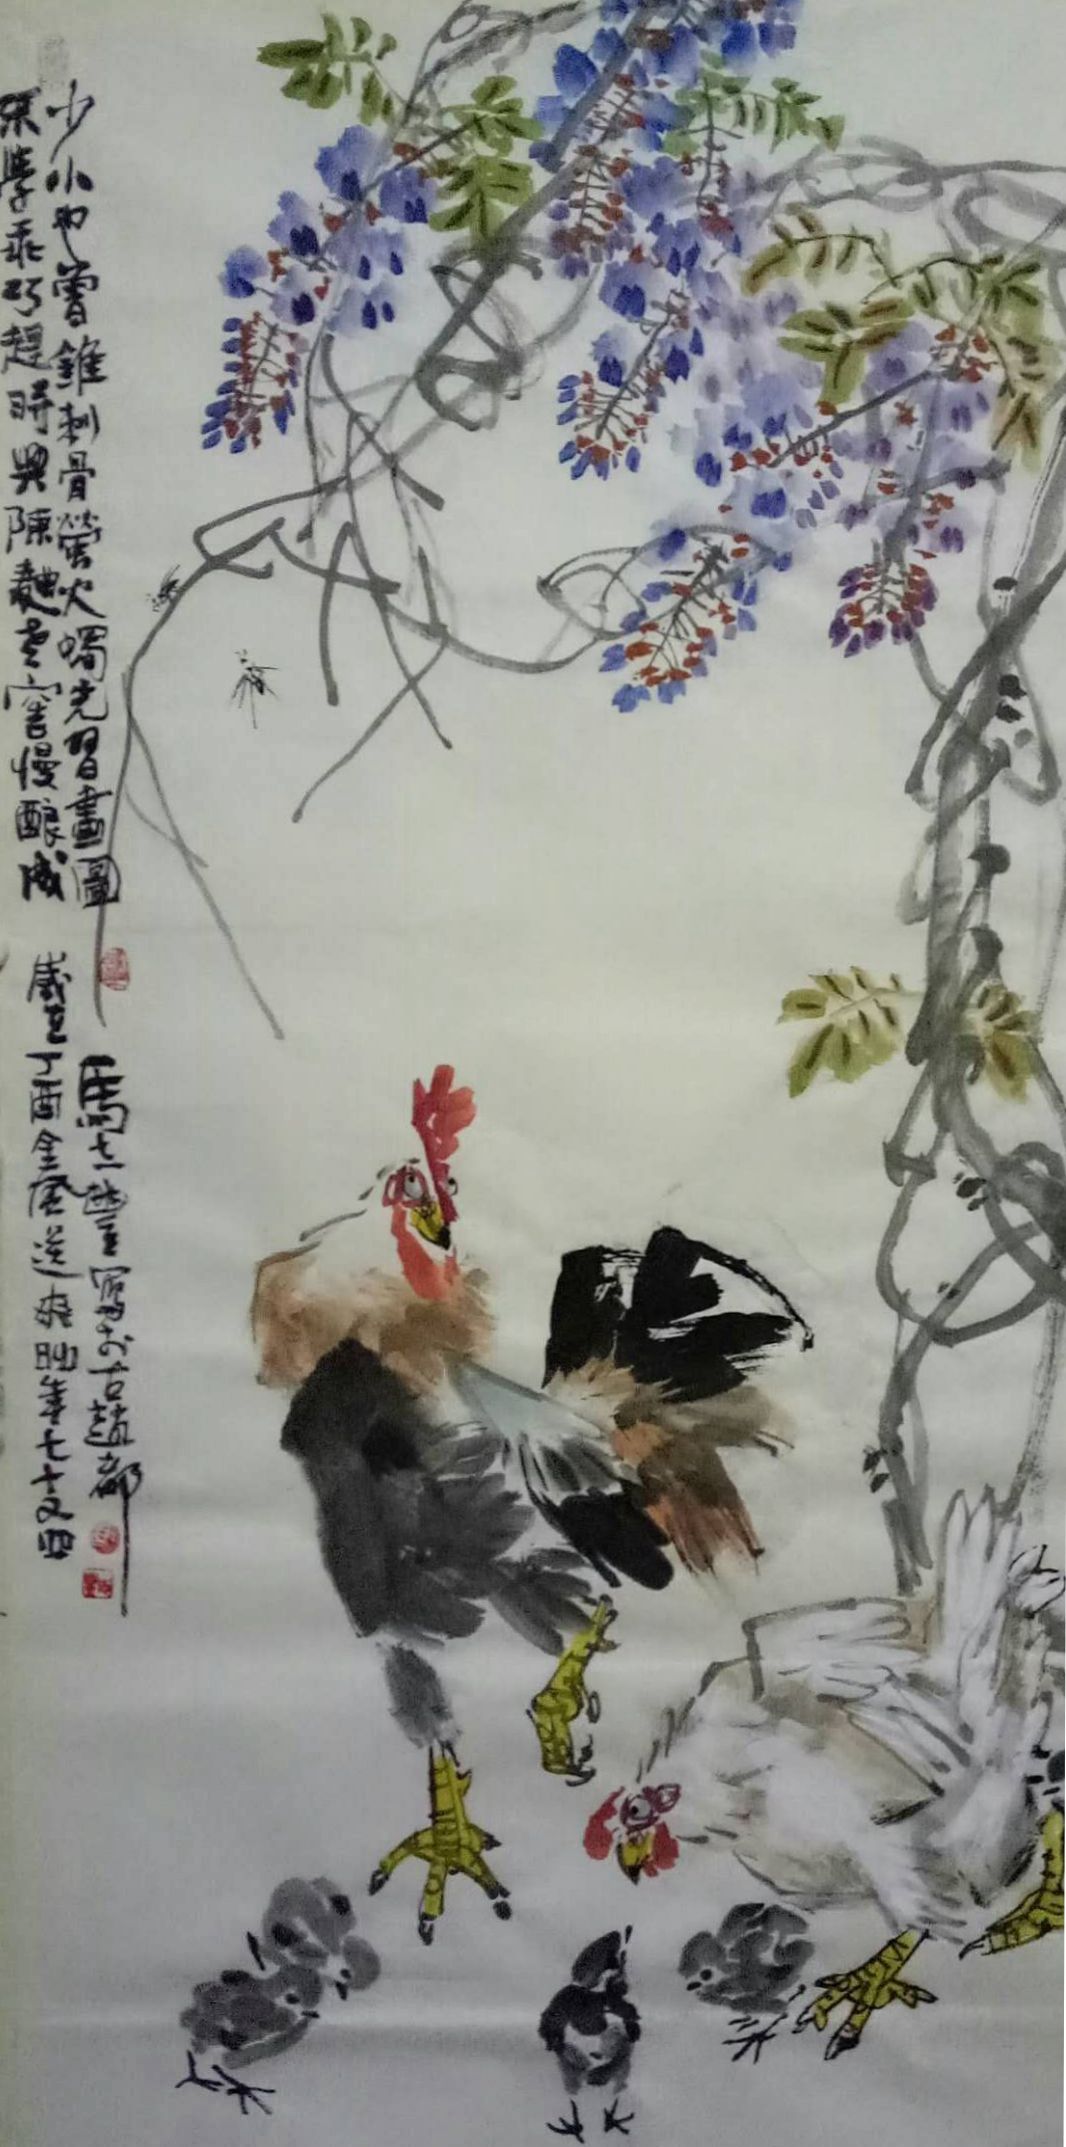 少小也曾錐刺骨螢火燭光習畫圖
不學乖巧趕時興陳麯老窖慢釀成
歲在丁酉金風送爽時年七十又四
馬志豐寫於古趙都